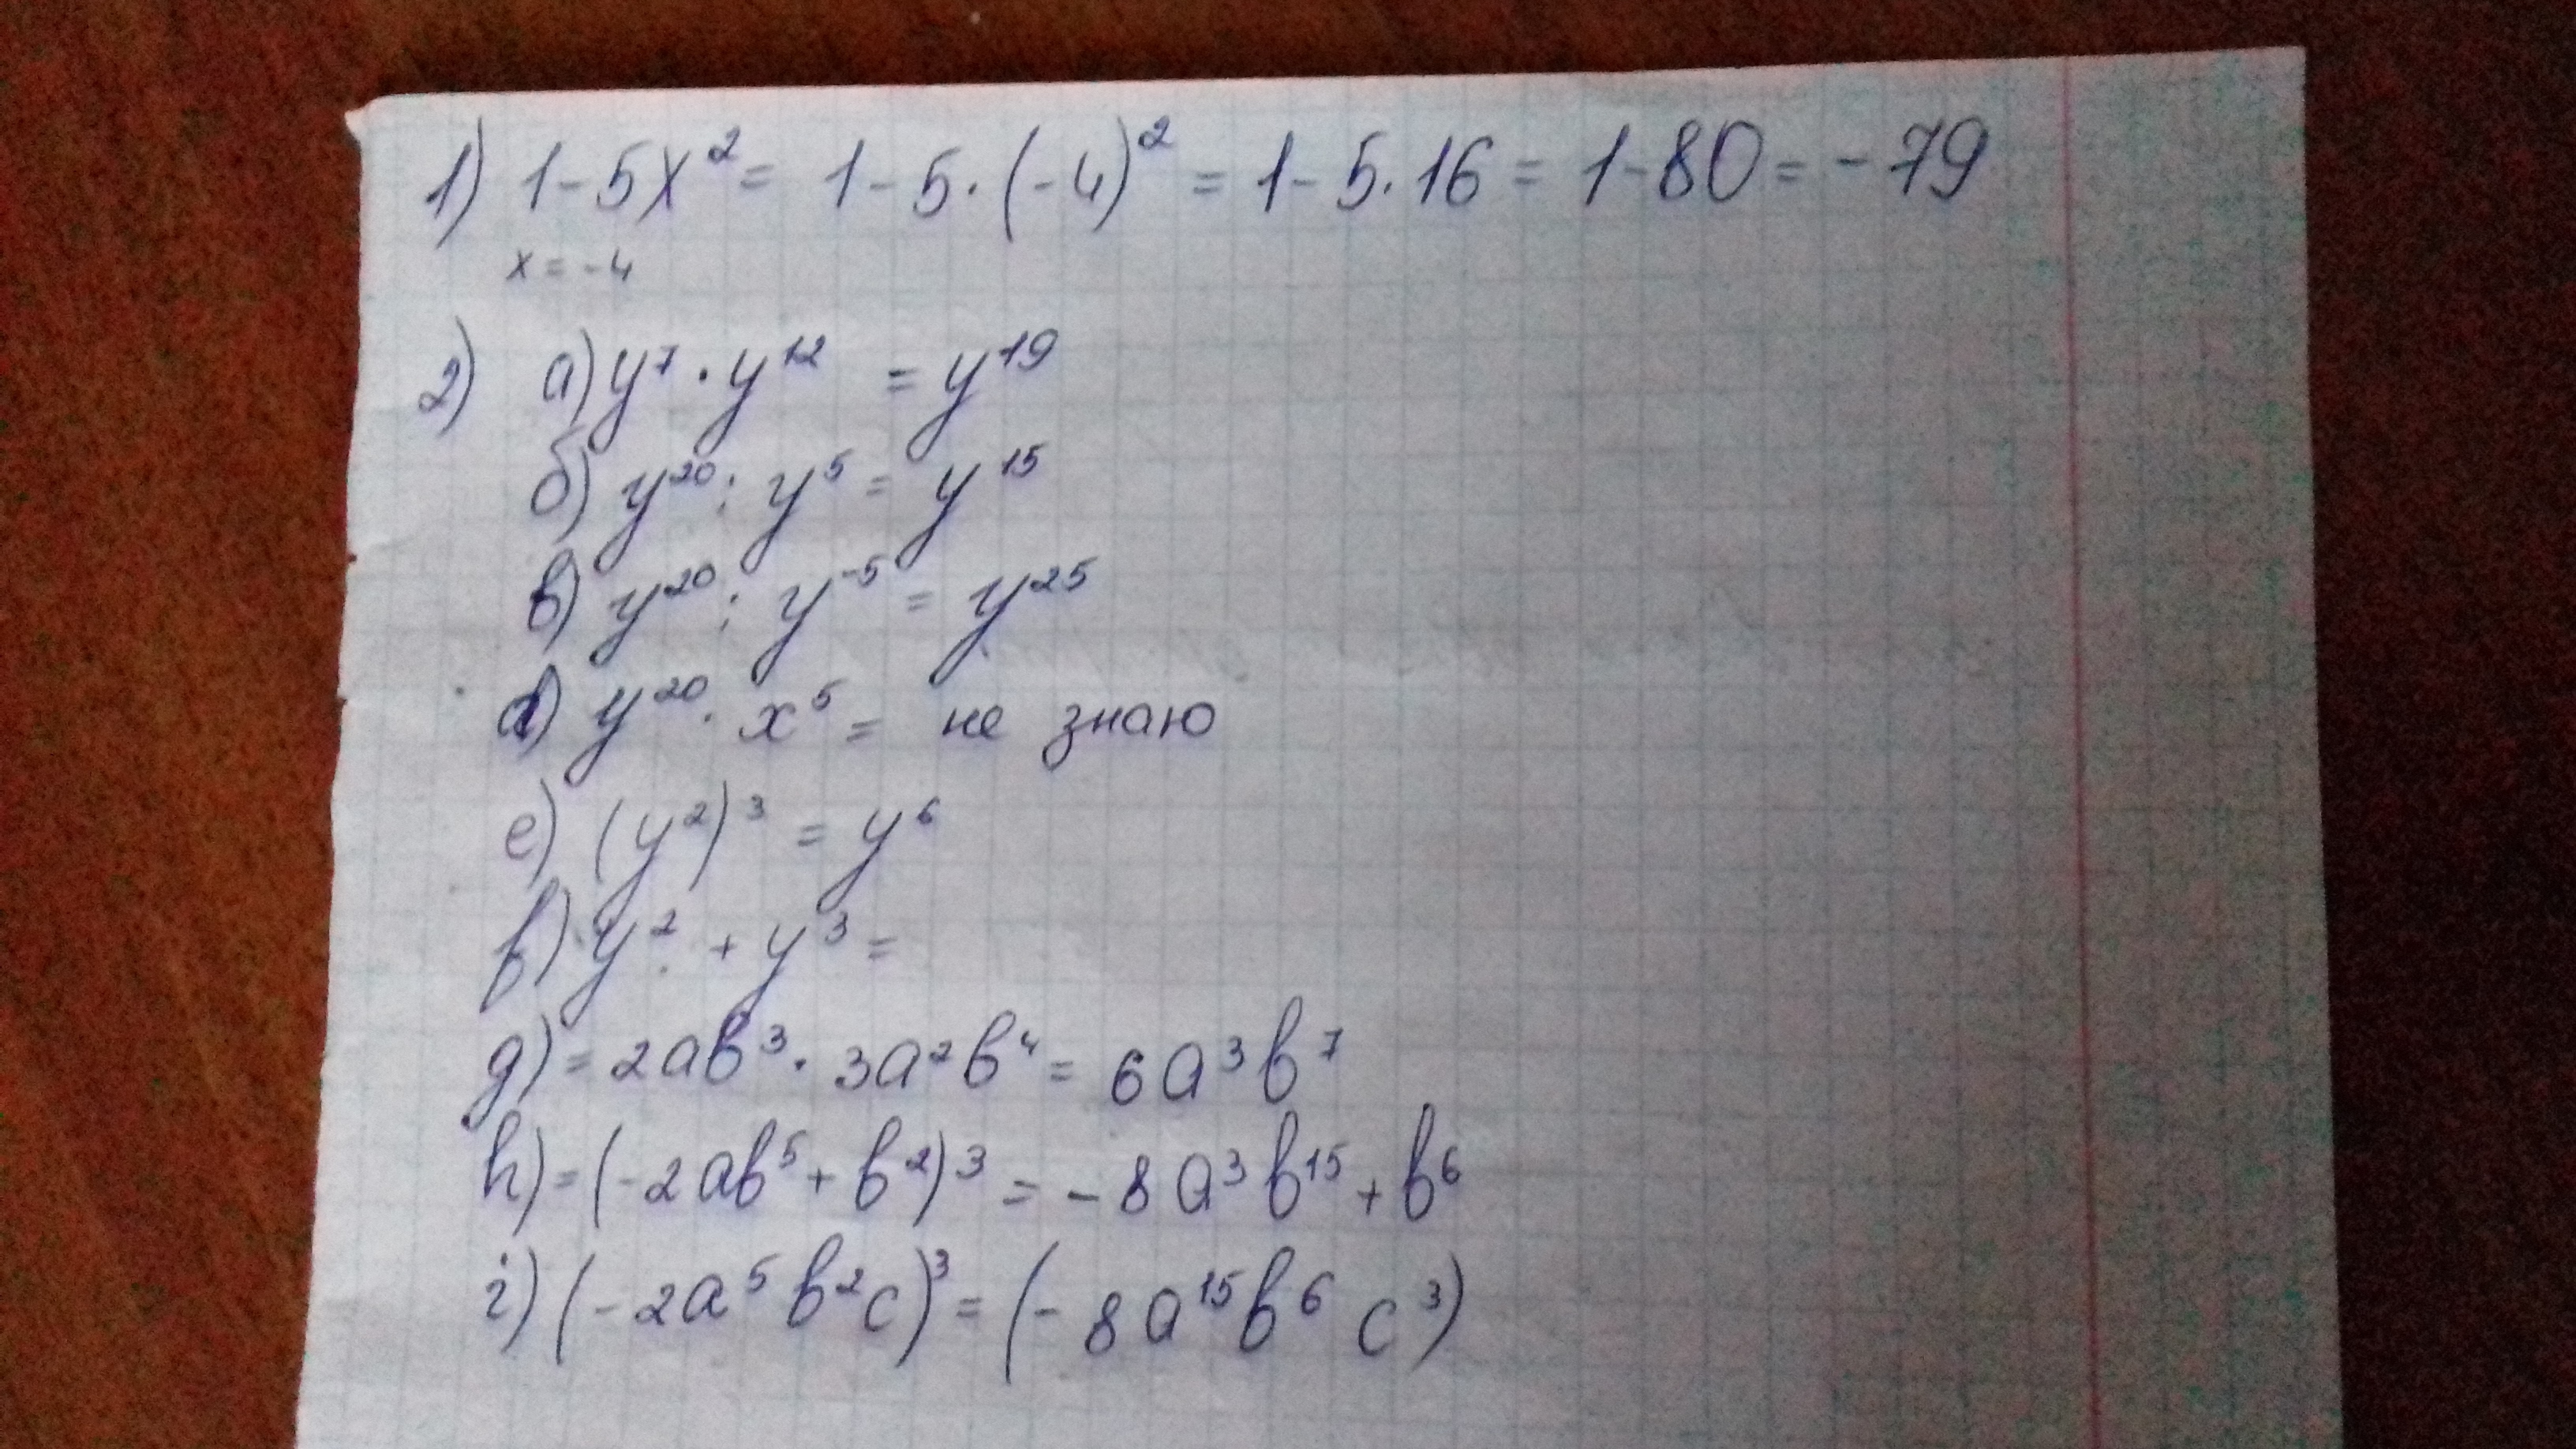 1) 1-5x² = 1-5·(-4)² = 1-5·16 = 1-80 = -79
x = -4
2) а) y⁷ · y¹² = y¹⁹
б) y²⁰ : y⁵ = y¹⁵
в) y²⁰ : y⁻⁵ = y²⁵
d) y²⁰ · x⁵ = не знаю
e) (y²)³ = y⁶
f) y² + y³ =
g) = 2ab³ · 3a²b⁴ = 6a³b⁷
h) = (-2ab⁵ + b²)³ = -8a³b¹⁵ + b⁶
i) (-2a⁵b²c)³ = (-8a¹⁵b⁶c³)